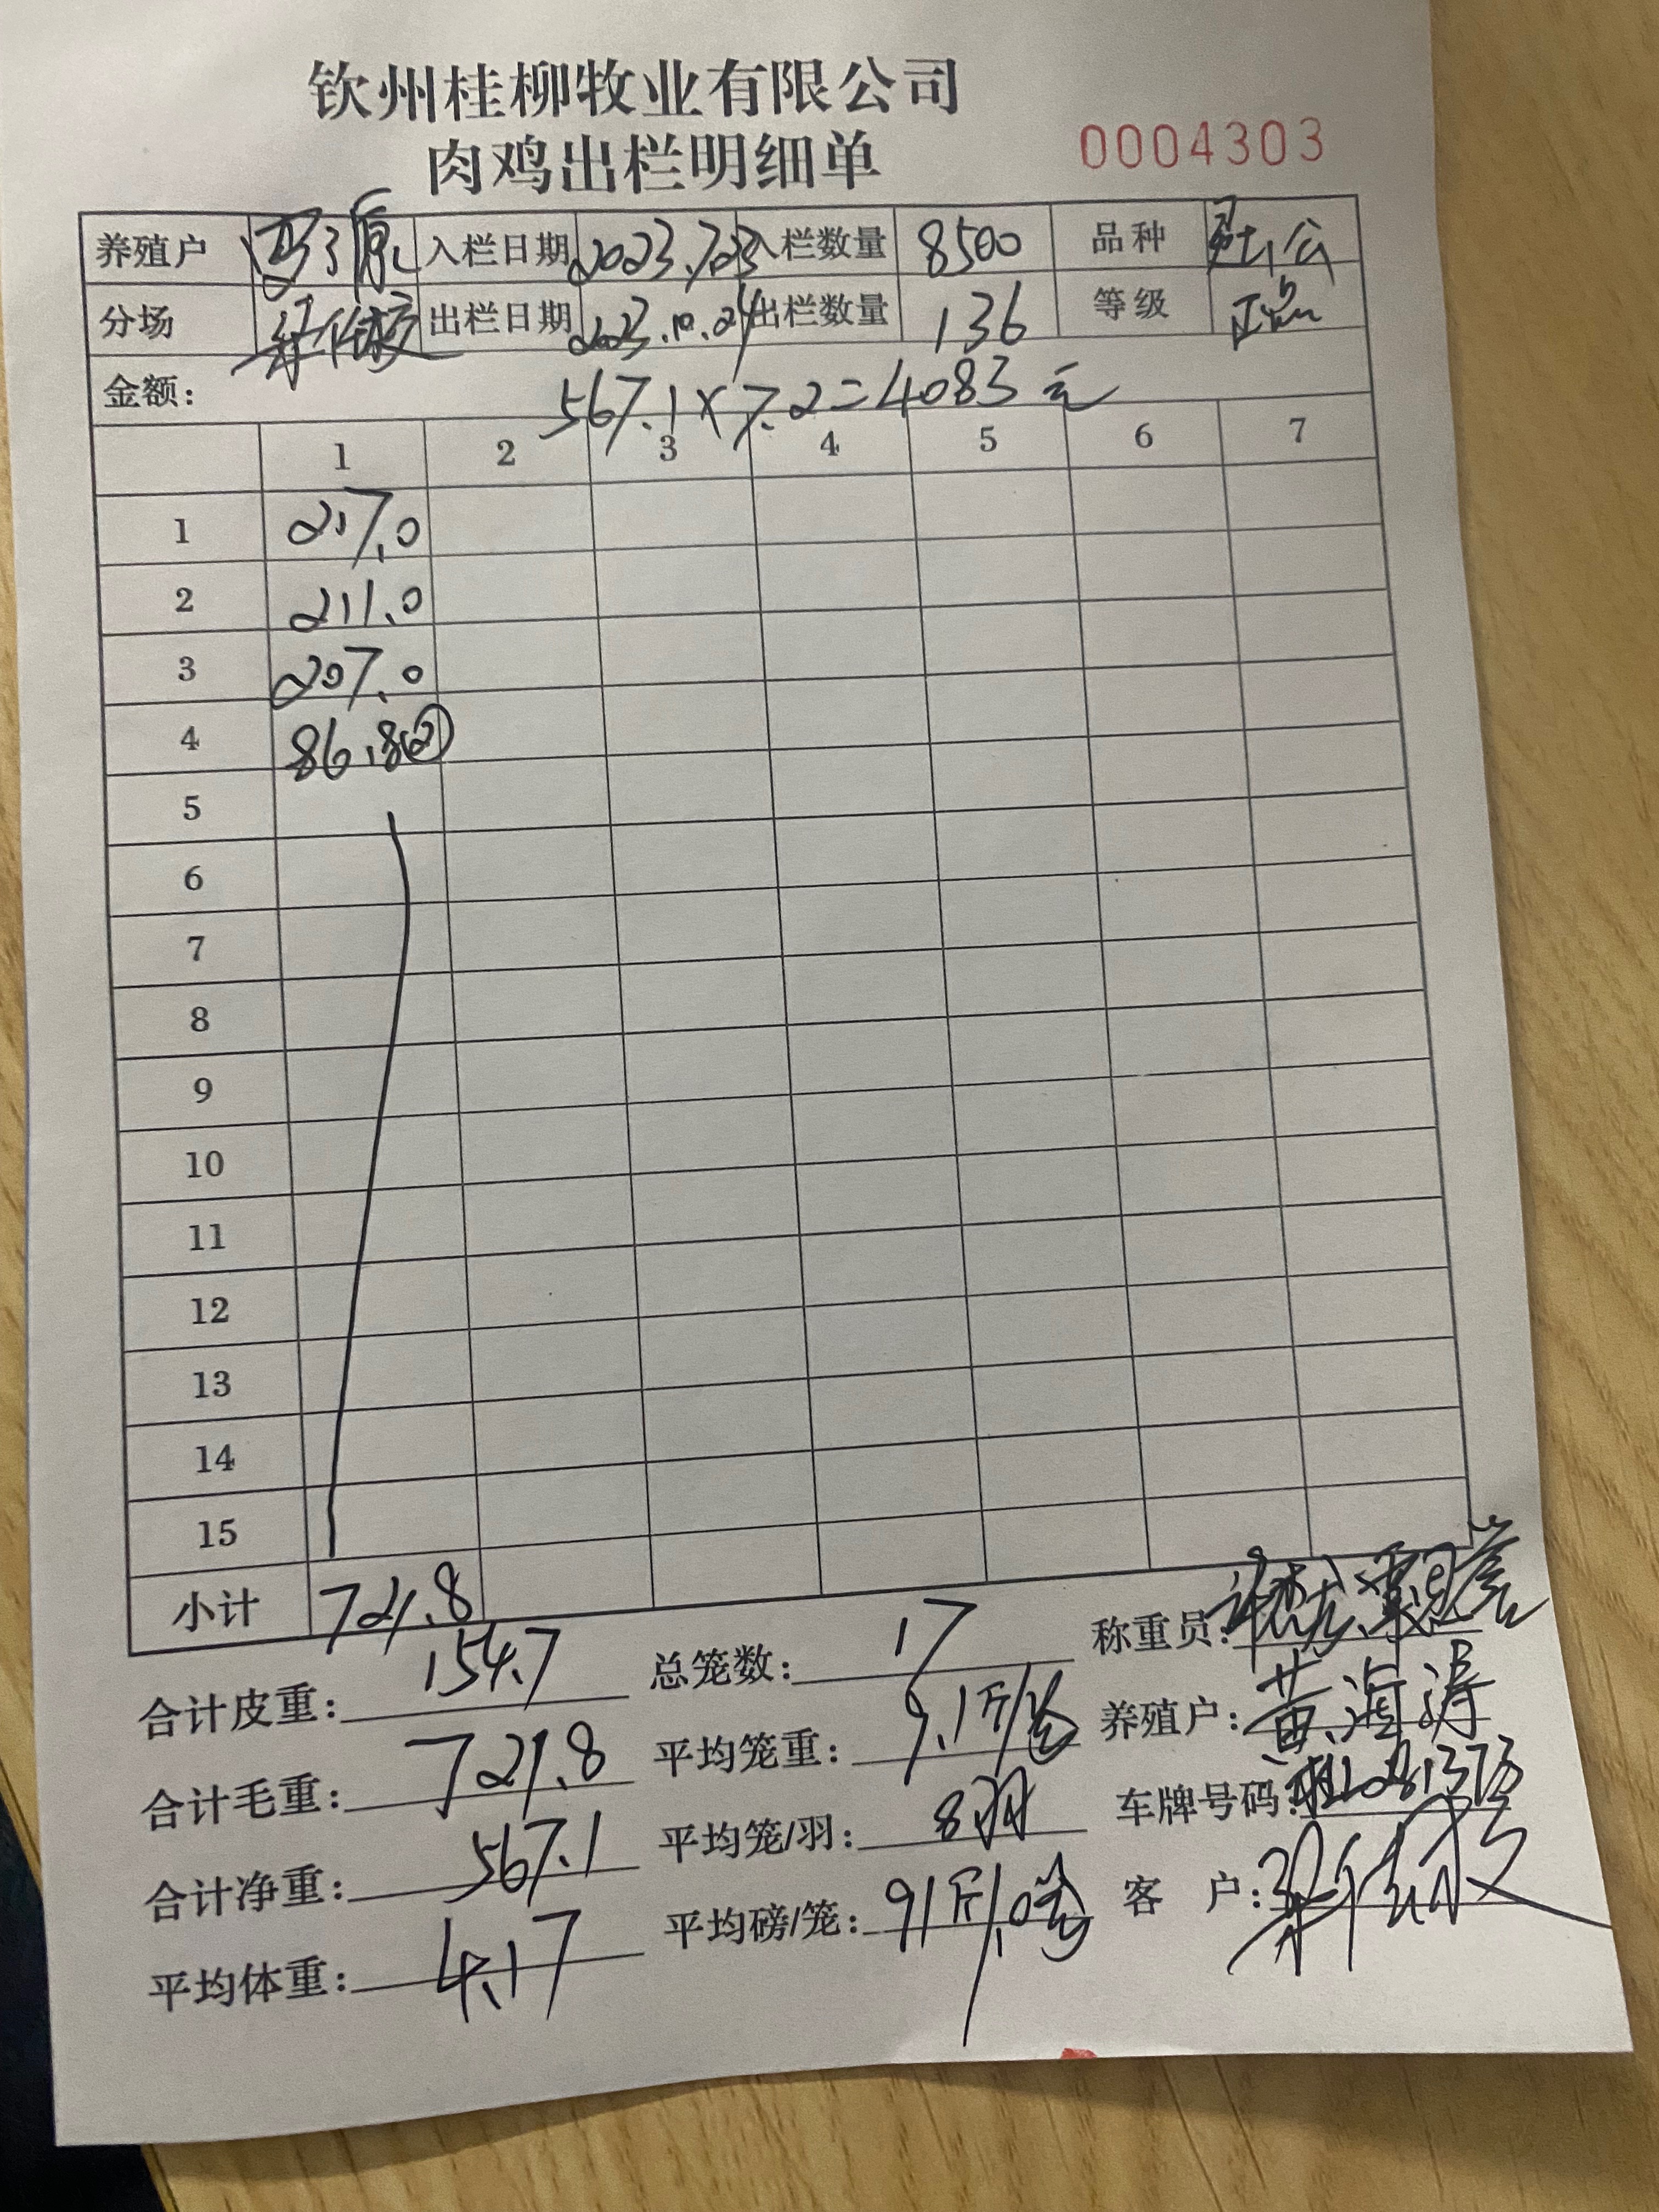 钦州桂柳牧业有限公司
肉鸡出栏明细单
0004303
养殖户 入栏日期 2023.7.23 入栏数量 8500 品种
分场 出栏日期 2023.10.24 出栏数量 136 等级 正品
金额: 567.1×7.2=4083元
1 2 3 4 5 6 7
1 217.0
2 211.0
3 207.0
4 86.8②
5
6
7
8
9
10
11
12
13
14
15
小计 721.8
合计皮重: 154.7 总笼数: 17 称重员:
合计毛重: 721.8 平均笼重: 9.1斤/笼 养殖户: 黄海涛
合计净重: 567.1 平均笼/羽: 8羽 车牌号码:
平均体重: 4.17 平均磅/笼: 客 户: